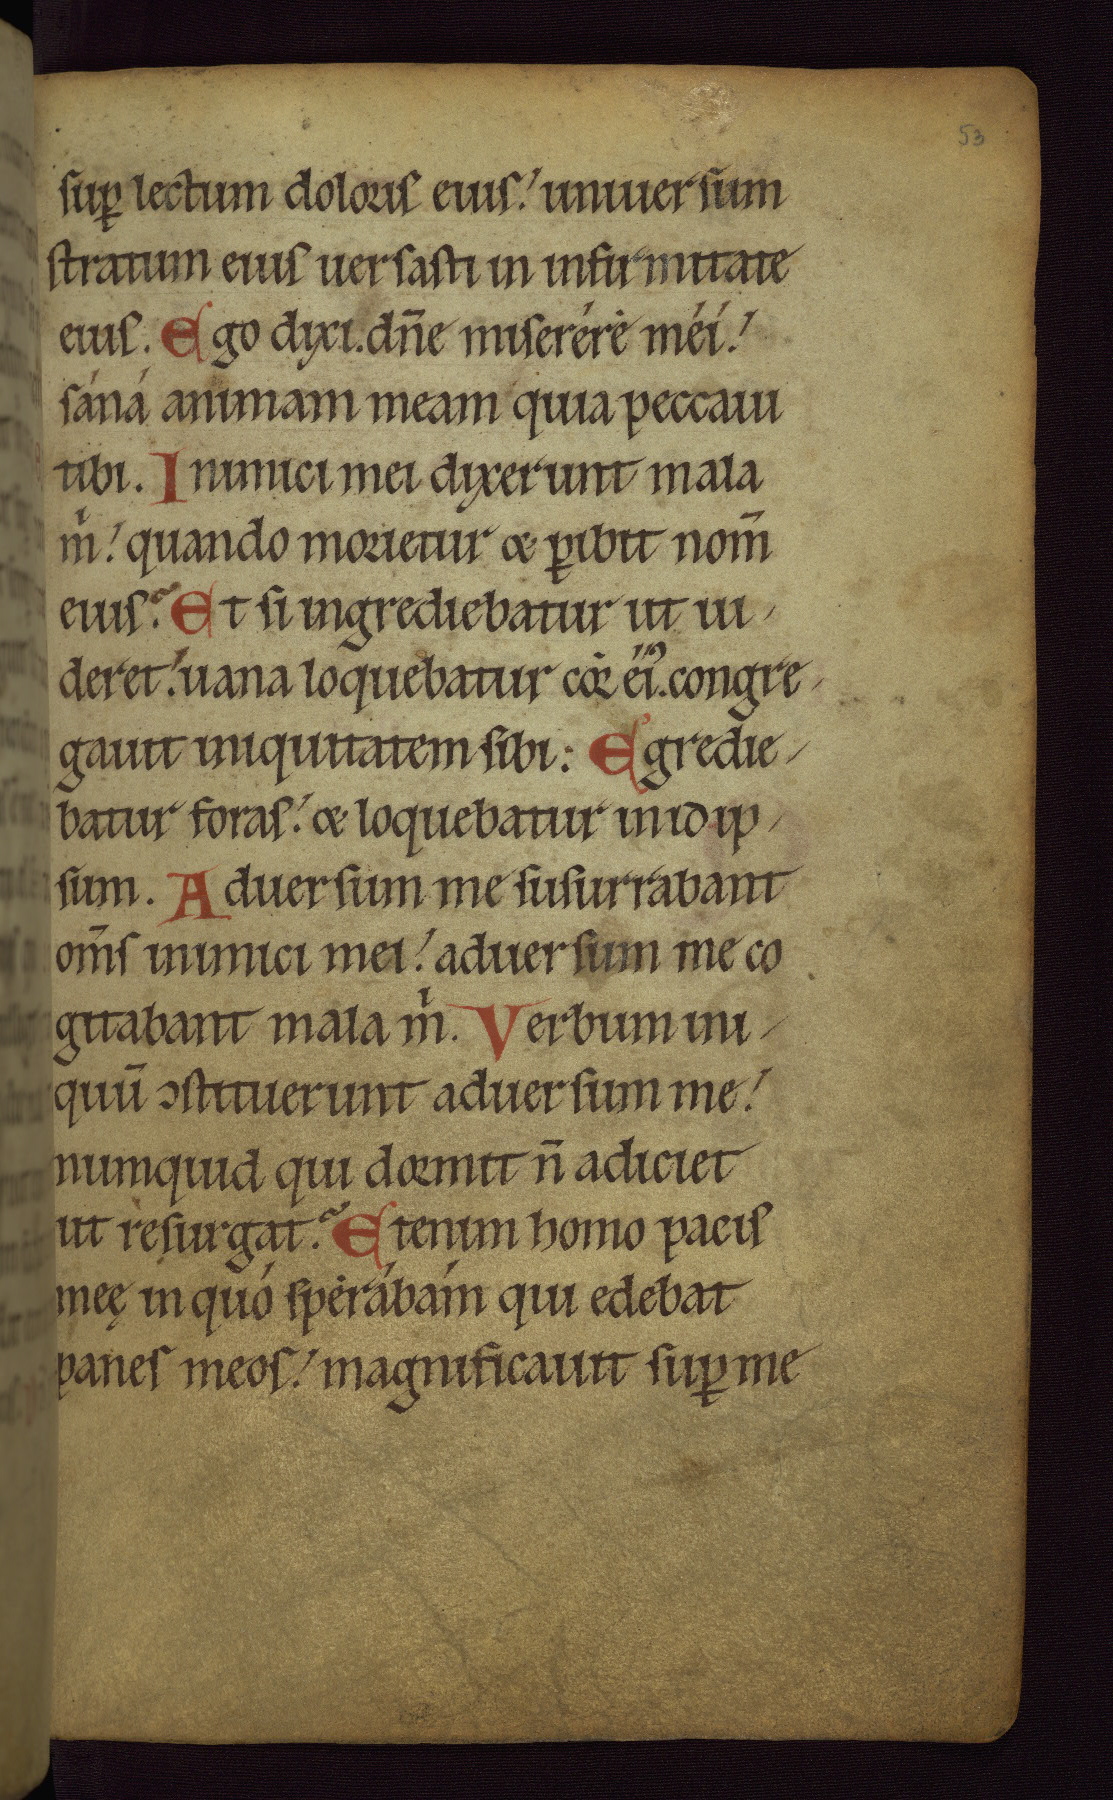 53
suꝑ lectum doloris eius! uniuersum
stratum eius uersasti in infirmitate
eius. Ego dixi. dn̄e miserére méi!
sáná animam meam quia peccaui
tibi. Inimici mei dixerunt mala
m̍! quando morietur & ꝑibit nom̄
eius? Et si ingrediebatur ut ui-
deret! uana loquebatur cor ei'. congre-
gauit iniquitatem sibi: Egredie-
batur foras! & loquebatur in idip-
sum. Aduersum me susurrabant
om̄s inimici mei! aduersum me co
gitabant mala m̍. Verbum ini-
quū ↄstituerunt aduersum me!
numquid qui dormit n̄ adiciet
ut resurgat? Etenim homo pacis
meę in quó sperábám qui edebat
panes meos! magnificauit suꝑ me